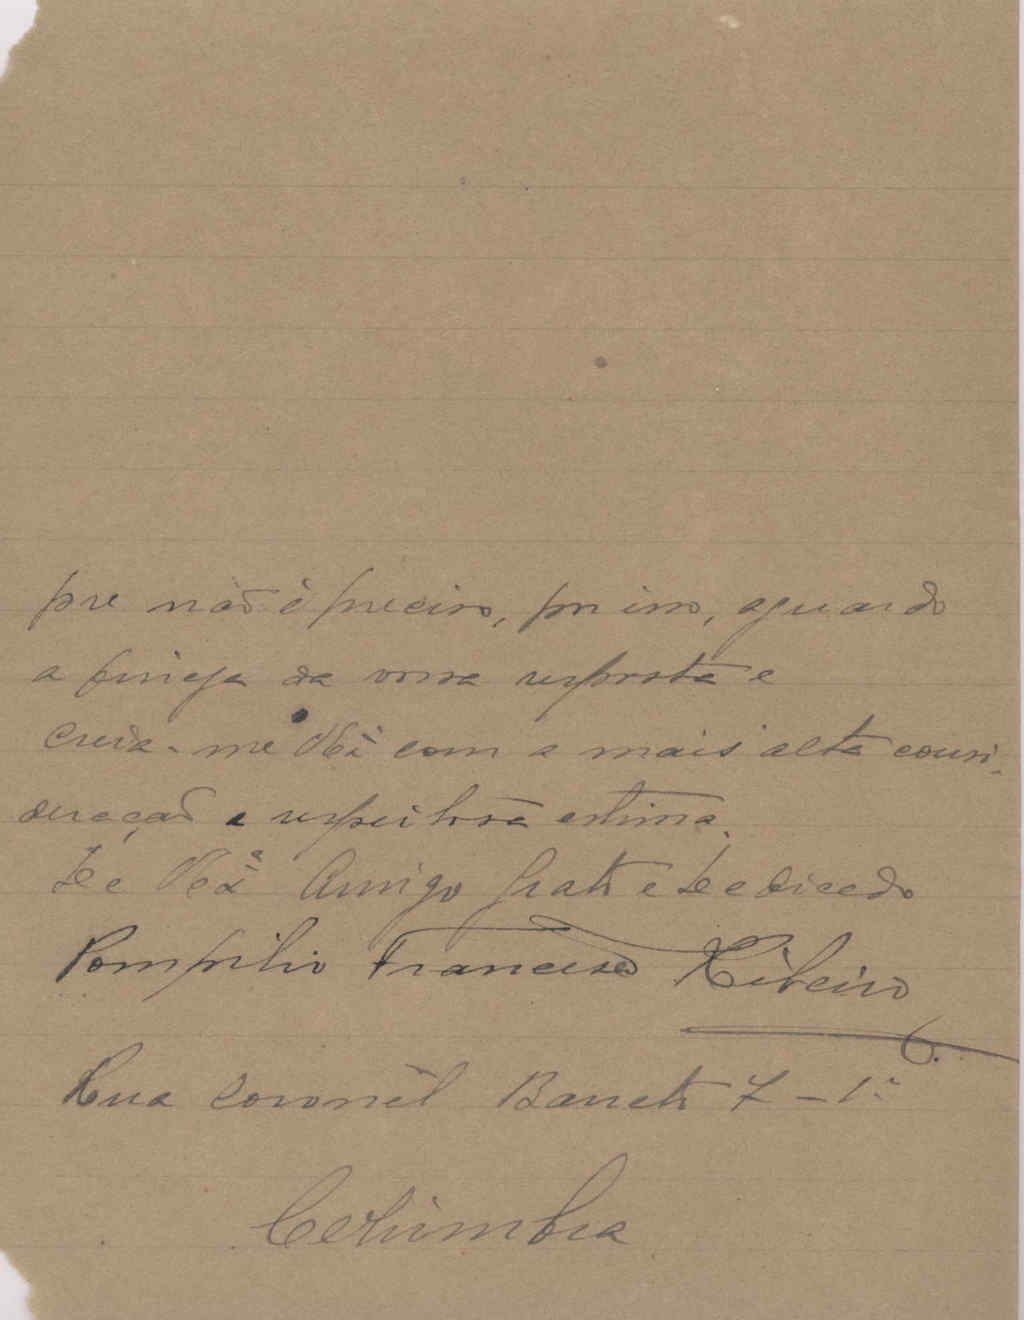 pre não é preciso, por isso, aguardo
a fineza da vossa resposta e
creia-me V Ex.ª com a mais alta consi-
deração e respeitosa estima.
De V Ex.ª Amigo grato e Dedicado
Pompilio Francisco Ribeiro
Rua Coronél 7 - 1º
Coimbra